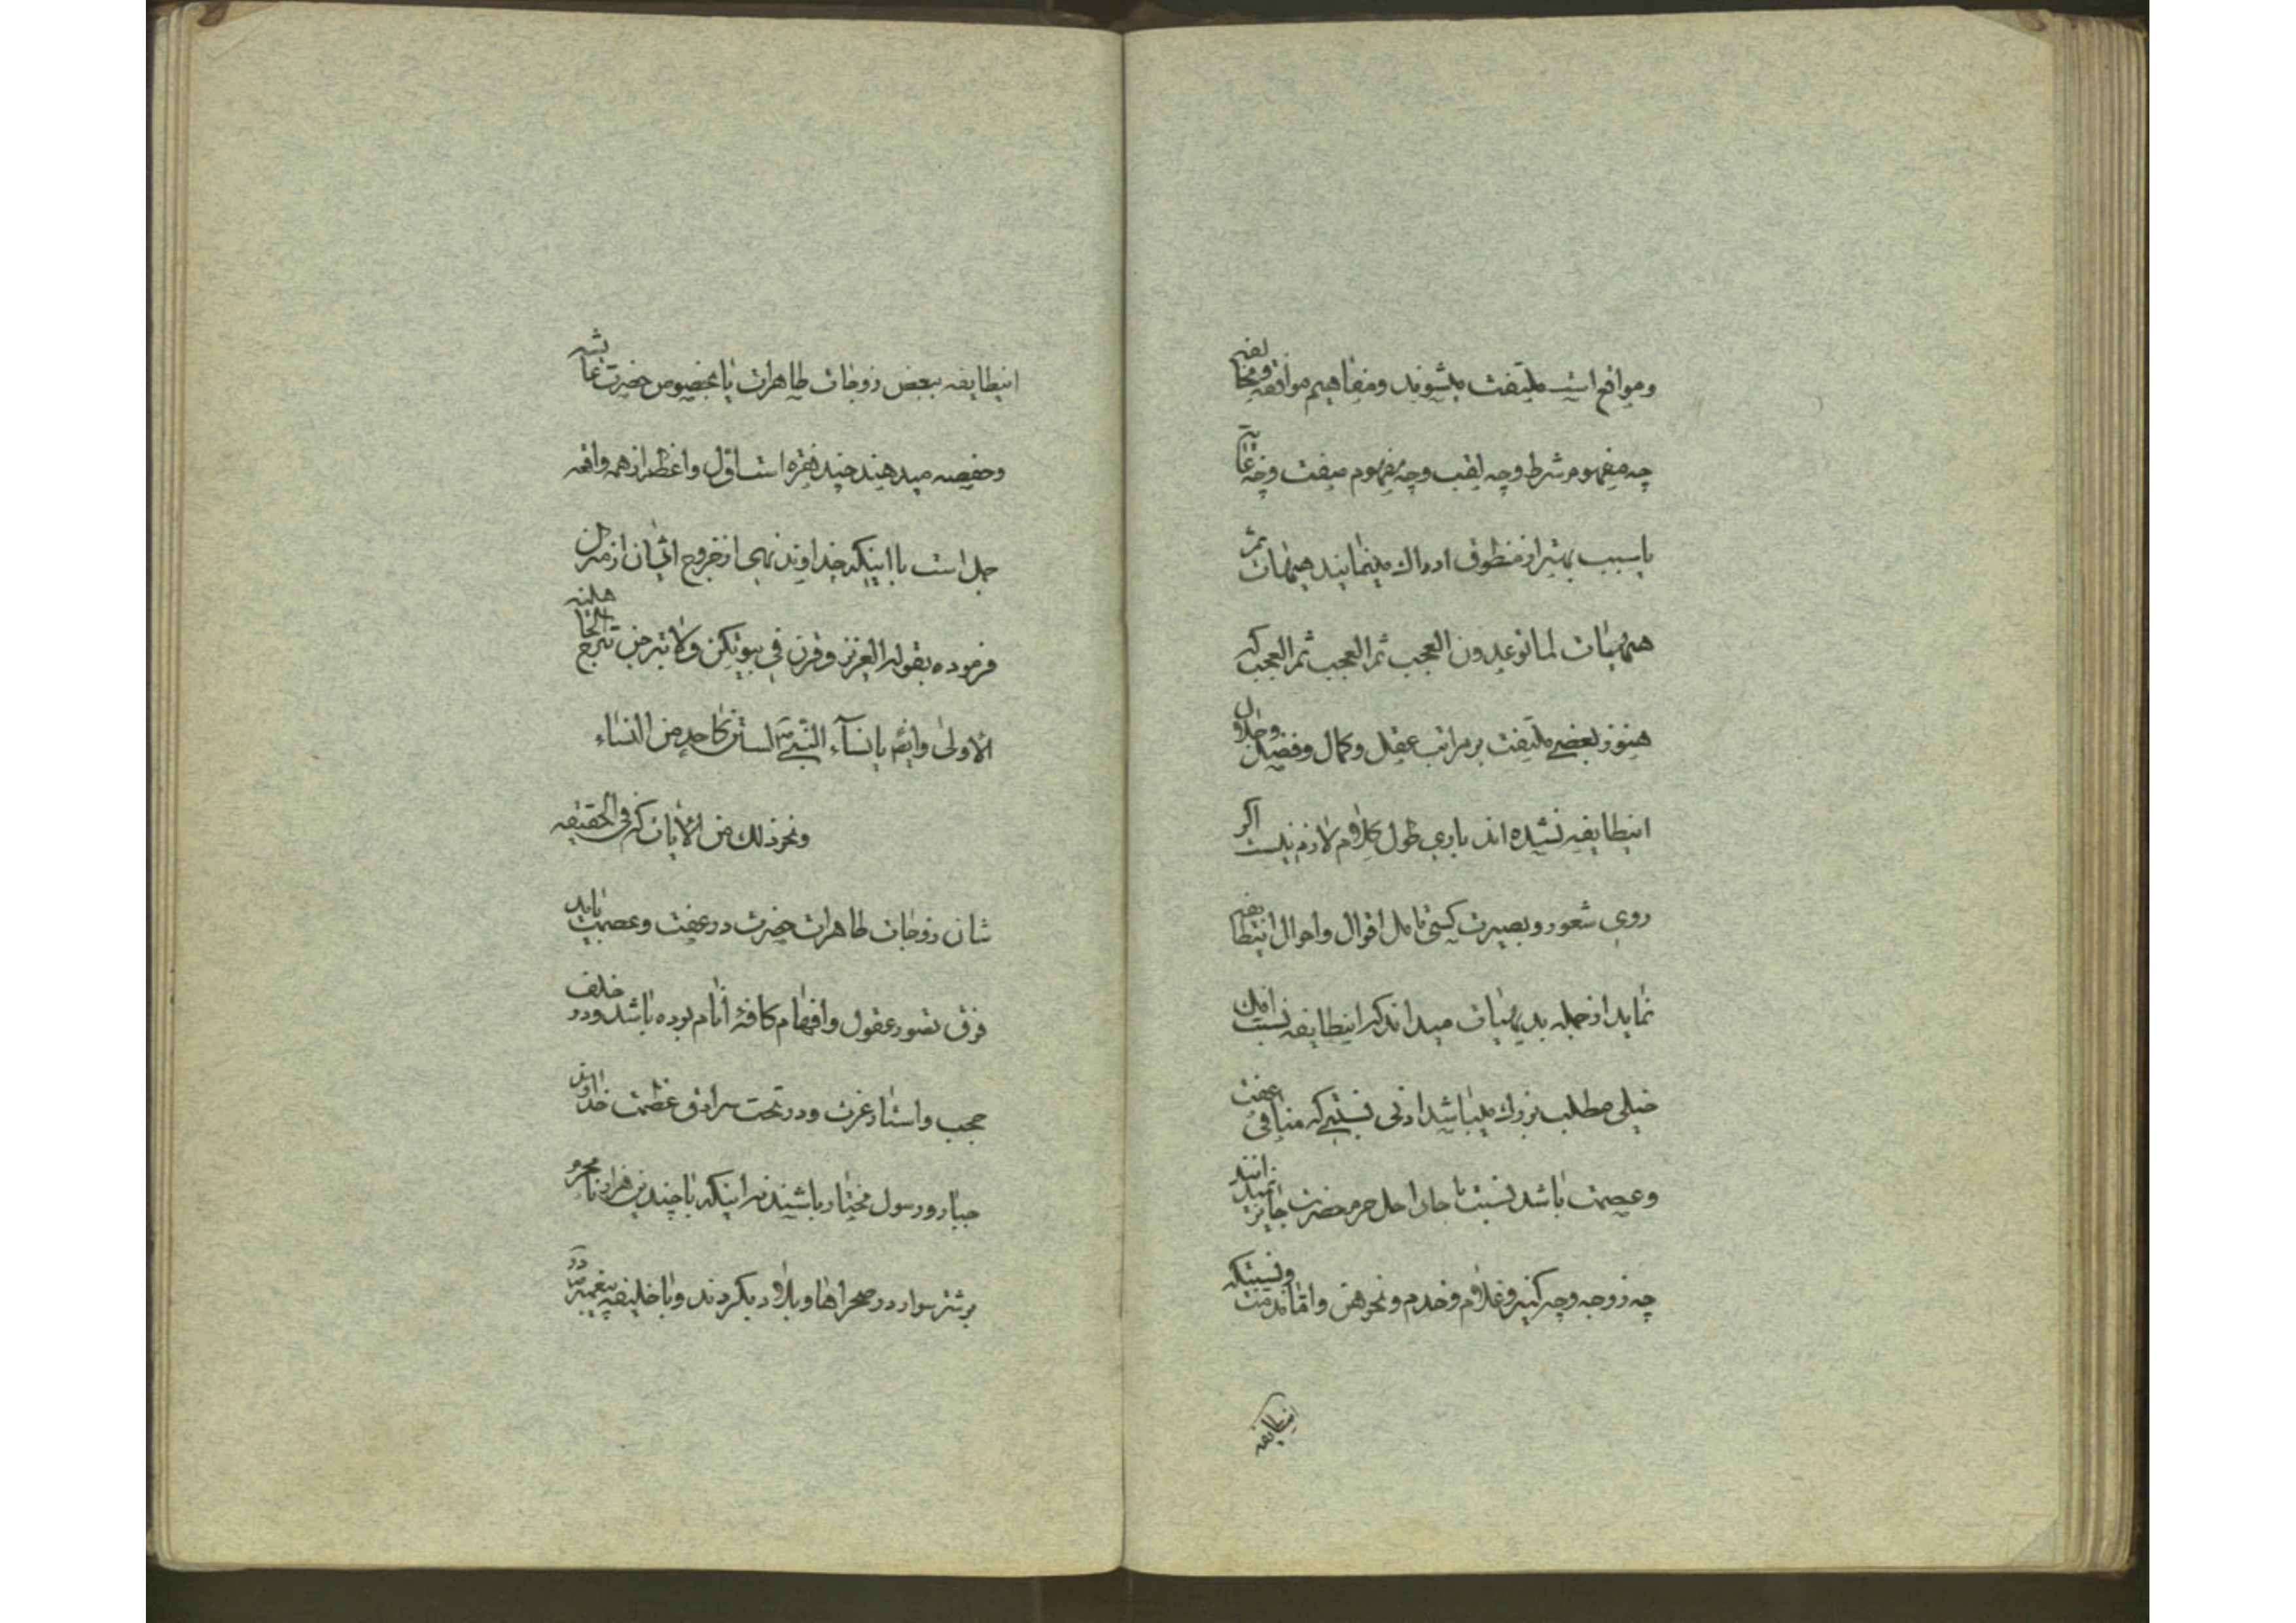 و مواقع است ملتفت میشوند و مفاهیم موافقه و مخالفه
چه مفهوم شرط و چه لقب و چه مفهوم صفت و چه غایة
یا سبب بهتر از منطوق ادراك مینمایند هیهات ثم
هیهات لما توعدون العجب ثم العجب ثم العجب که
هنوز بعضی ملتفت بر مراتب عقل و کمال و فضل و جلال
اینطایفه نشده اند باری طول کلام لازم نیست اگر
روی شعور و بصیرت کسی تامل اقوال و احوال اینطایفه
نماید از جمله بدیهیات میداند که اینطایفه نسبت افك
خیلی مطلب بزرك میباشد ادنی نسبتی که منافی عفت
و عصمت باشد نسبت با حدی اهل حرم حضرت جایز نمیدانند
چه زوجه و چه کنیز و غلام و خدم و نحو هن و اما مذمت و نسبتیکه
اینطایفه
اینطایفه ببعض زوجات طاهرات بالخصوص حضرت عایشه
و حفصه میدهند چند فقره است اول و اعظم از همه واقعه
جمل است با اینکه خداوند نهی از خروج ایشان از منزل
فرموده بقوله العزیز و قرن فی بیوتکن ولا تبرجن تبرج الجاهلیة
الاولی وایضا یا نسآء النبی لستن کاحد من النساء
و نحو ذلك من الآیات که فی الحقیقه
شان زوجات طاهرات حضرت در عفت و عصمت باید
فوق تصور عقول و افهام کافهٔ انام بوده باشد و در خلف
حجب و استار عزت و در تحت سرادق عظمت خداوند
جبار و رسول مختار باشند نه اینکه با چندین هزار نامحرم
بر شتر سوار در صحراها و بلاد بگردند و با خلیفه پیغمبر در